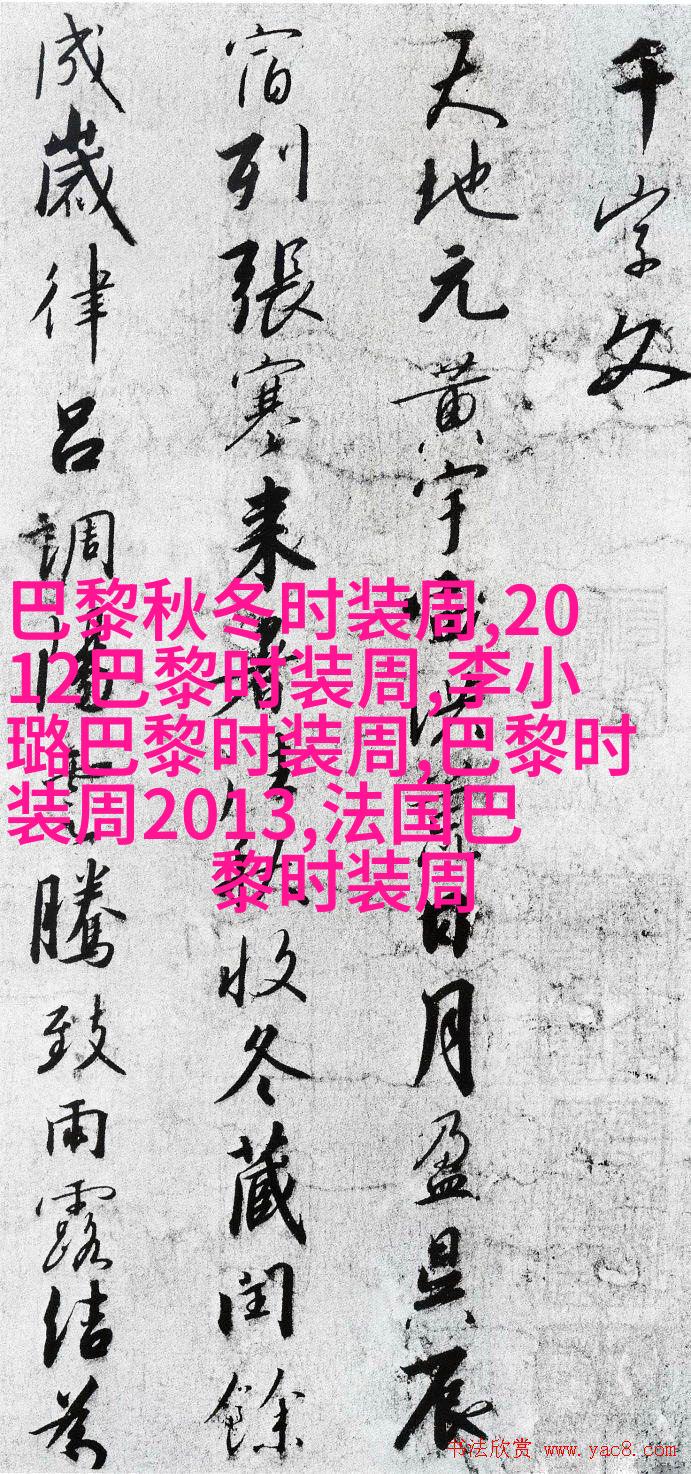 千字文
天地元黃宇宙洪荒日月盈昃辰
宿列張寒来暑往秋收冬藏閏餘
成歲律呂調陽雲騰致雨露結為
巴黎秋冬时装周,20
12巴黎时装周,李小
璐巴黎时装周,巴黎时
装周2013,法国巴
黎时装周
书法欣赏 www.yac8.com